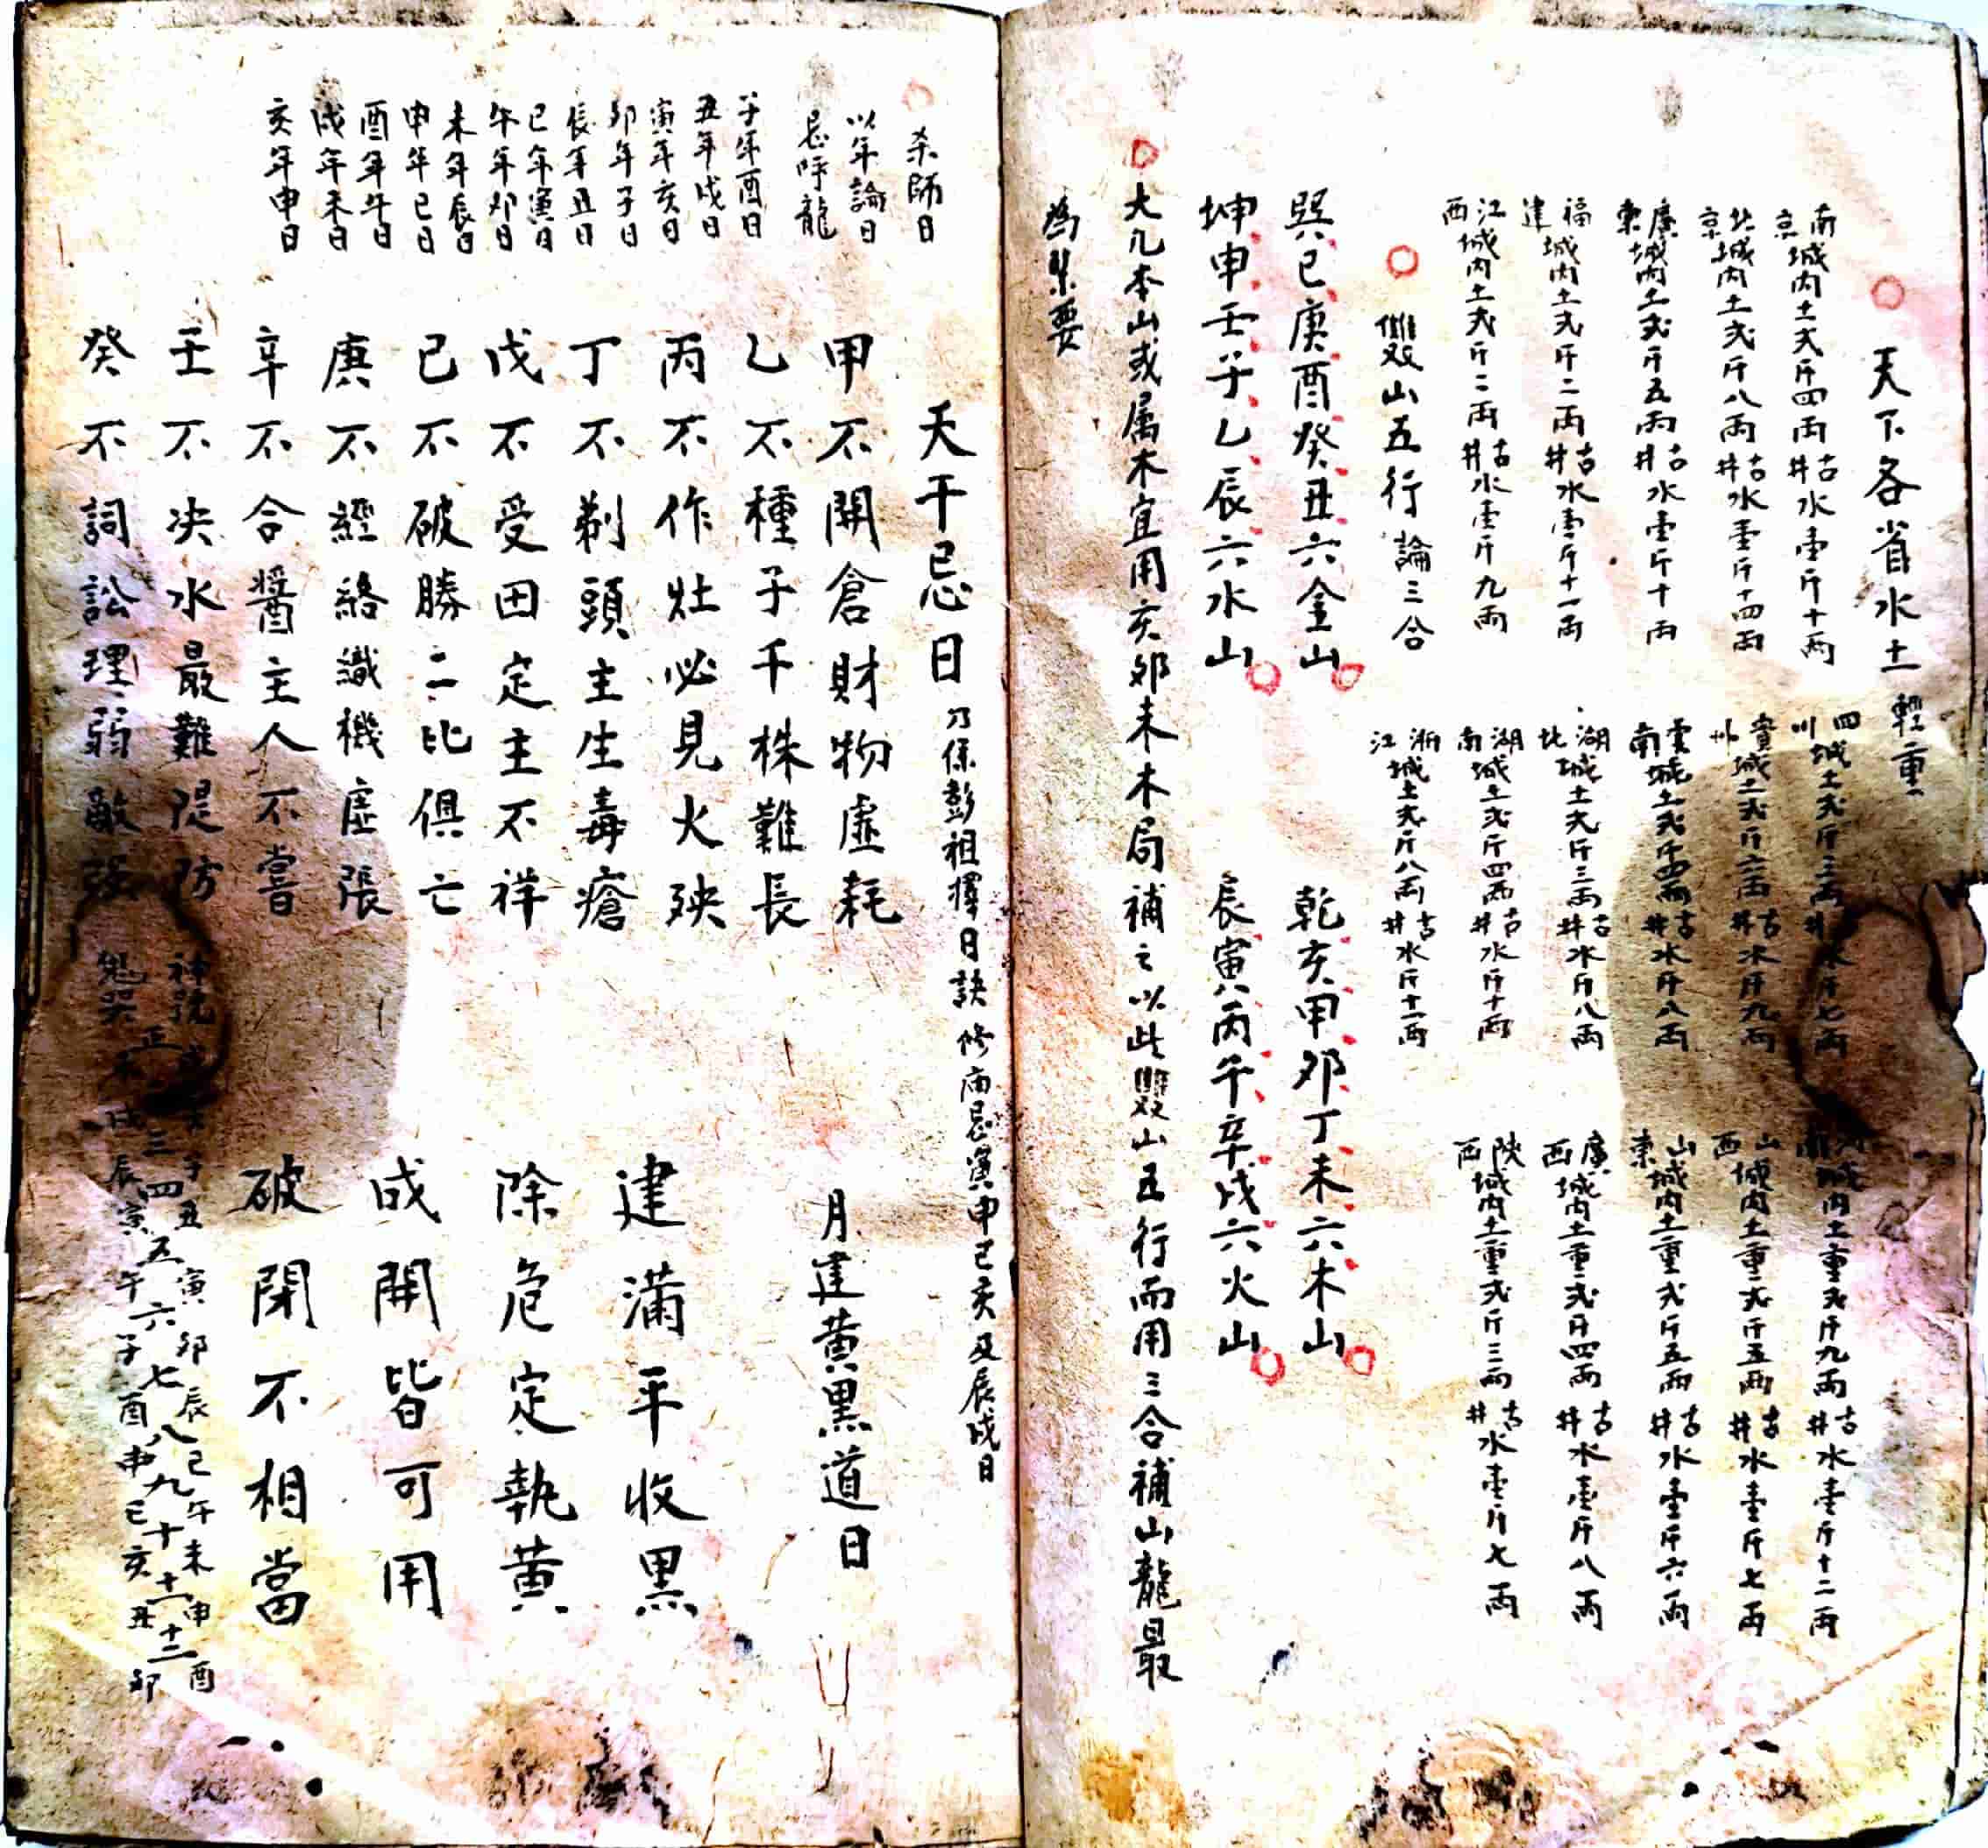 天下各省水土輕重
南京城内土弍斤四両古井水壹斤十両
北京城内土弍斤八両古井水壹斤十四両
廣東城内土弍斤五両古井水壹斤十両
福建城内土弍斤二両古井水壹斤十一両
江西城内土弍斤二両古井水壹斤九両
四川城土弍斤三両井水斤七両
貴州城土弍斤六両古井水斤九両
雲南城土弍斤四両古井水斤八両
湖北城土弍斤三両古井水斤八両
湖南城土弍斤四両古井水斤十両
浙江城土弍斤八両古井水斤十一両
南城内土重弍斤九両古井水壹斤十二両
山西城内土重弍斤五両古井水壹斤七両
山東城内土重弍斤五両古井水壹斤六両
廣西城内土重弍斤四両古井水壹斤八両
陝西城内土重弍斤三両古井水壹斤七両
雙山五行論三合
巽巳庚酉癸丑六金山
乾亥甲卯丁未六木山
坤申壬子乙辰六水山
艮寅丙午辛戌六火山
大凡本山或属木宜用亥卯未木局補之以此雙山五行而用三合補山龍最
為緊要
杀師日
以年論日
忌呼龍
子年酉日
丑年戌日
寅年亥日
卯年子日
辰年丑日
巳年寅日
午年卯日
未年辰日
申年巳日
酉年午日
戌年未日
亥年申日
天干忌日乃係彭祖擇日訣 修庙忌寅申巳亥及辰戌日
甲不開倉財物虛耗
乙不種子千株難長
丙不作灶必見火殃
丁不剃頭主生毒瘡
戊不受田定主不祥
己不破勝二比俱亡
庚不經絡識機虛張
辛不合醬主人不嘗
壬不决水最難隄防
癸不詞訟理弱敵强
月建黄黑道日
建滿平收黑
除危定執黄
成開皆可用
破閉不相當
神號戌子丑寅卯辰巳午未申酉
正三四五六七八九十十一十二
鬼哭未戌辰寅午子酉申巳亥丑卯